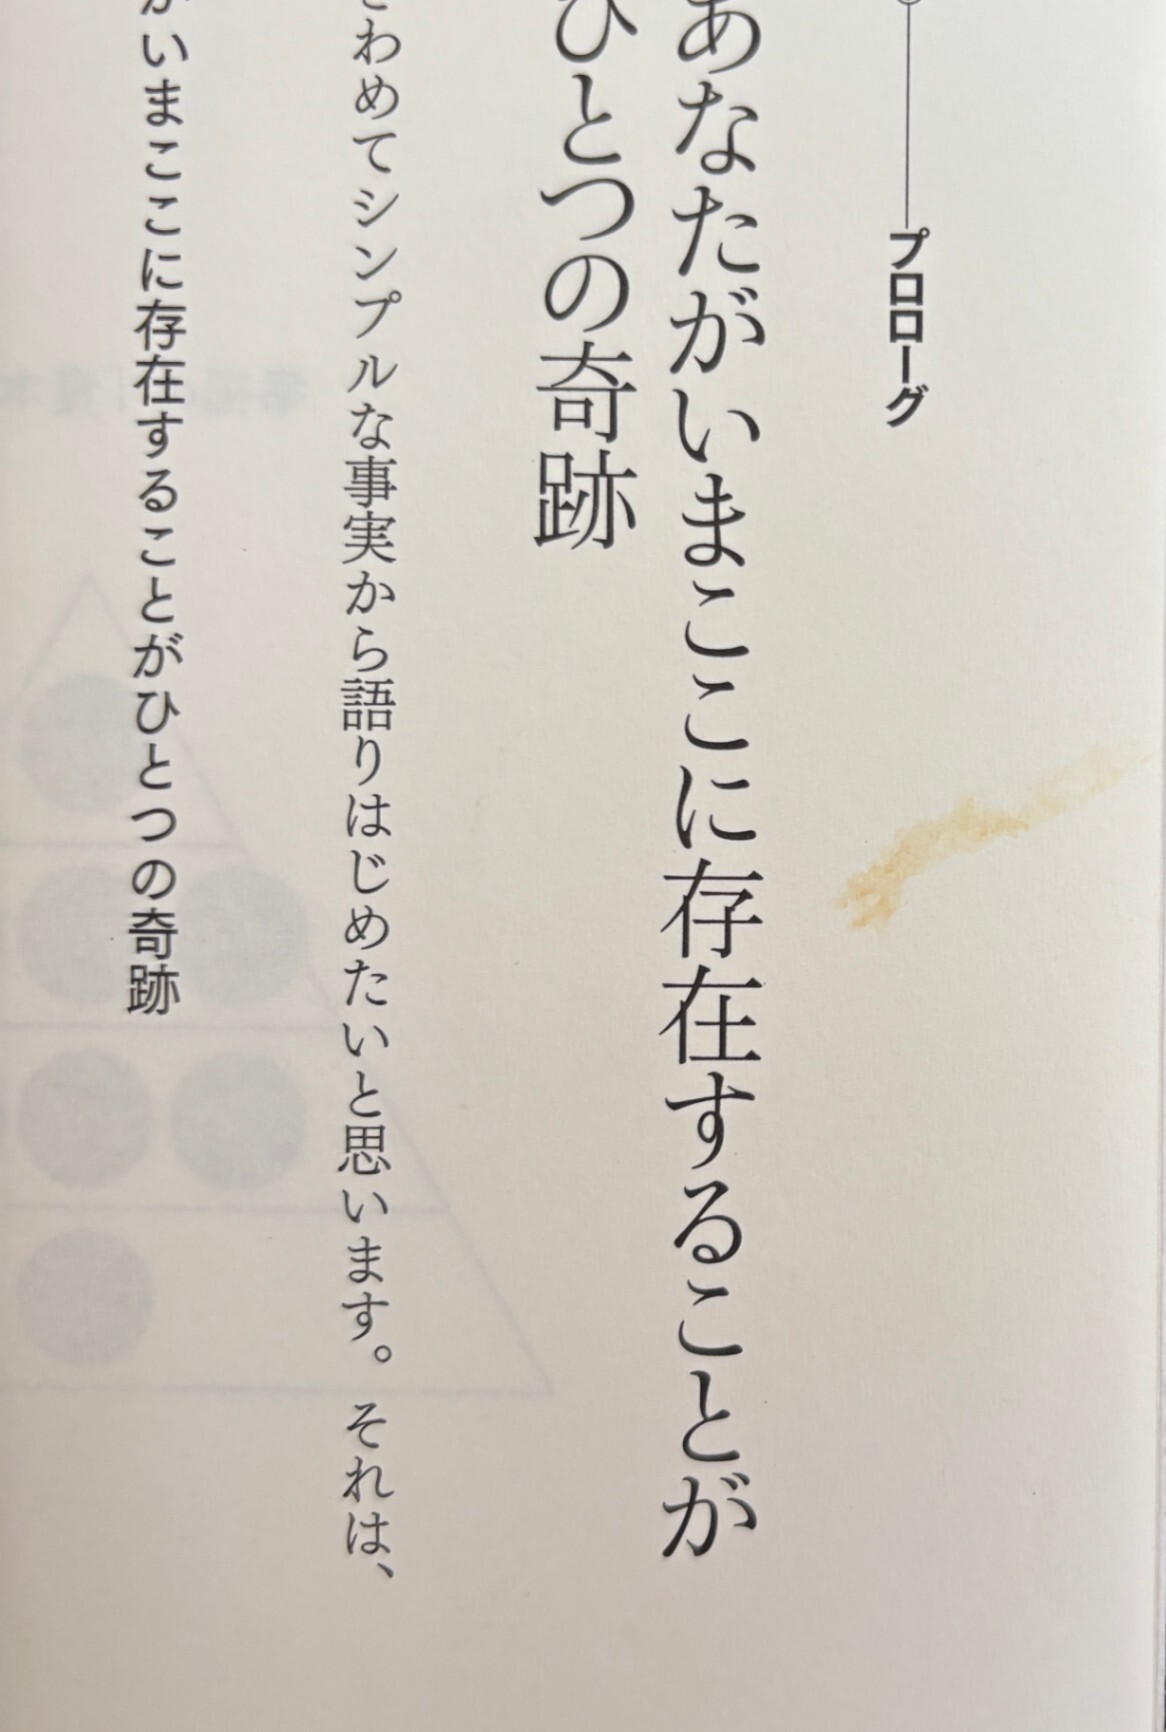 プロローグ
あなたがいまここに存在することが
ひとつの奇跡
きわめてシンプルな事実から語りはじめたいと思います。それは、
がいまここに存在することがひとつの奇跡